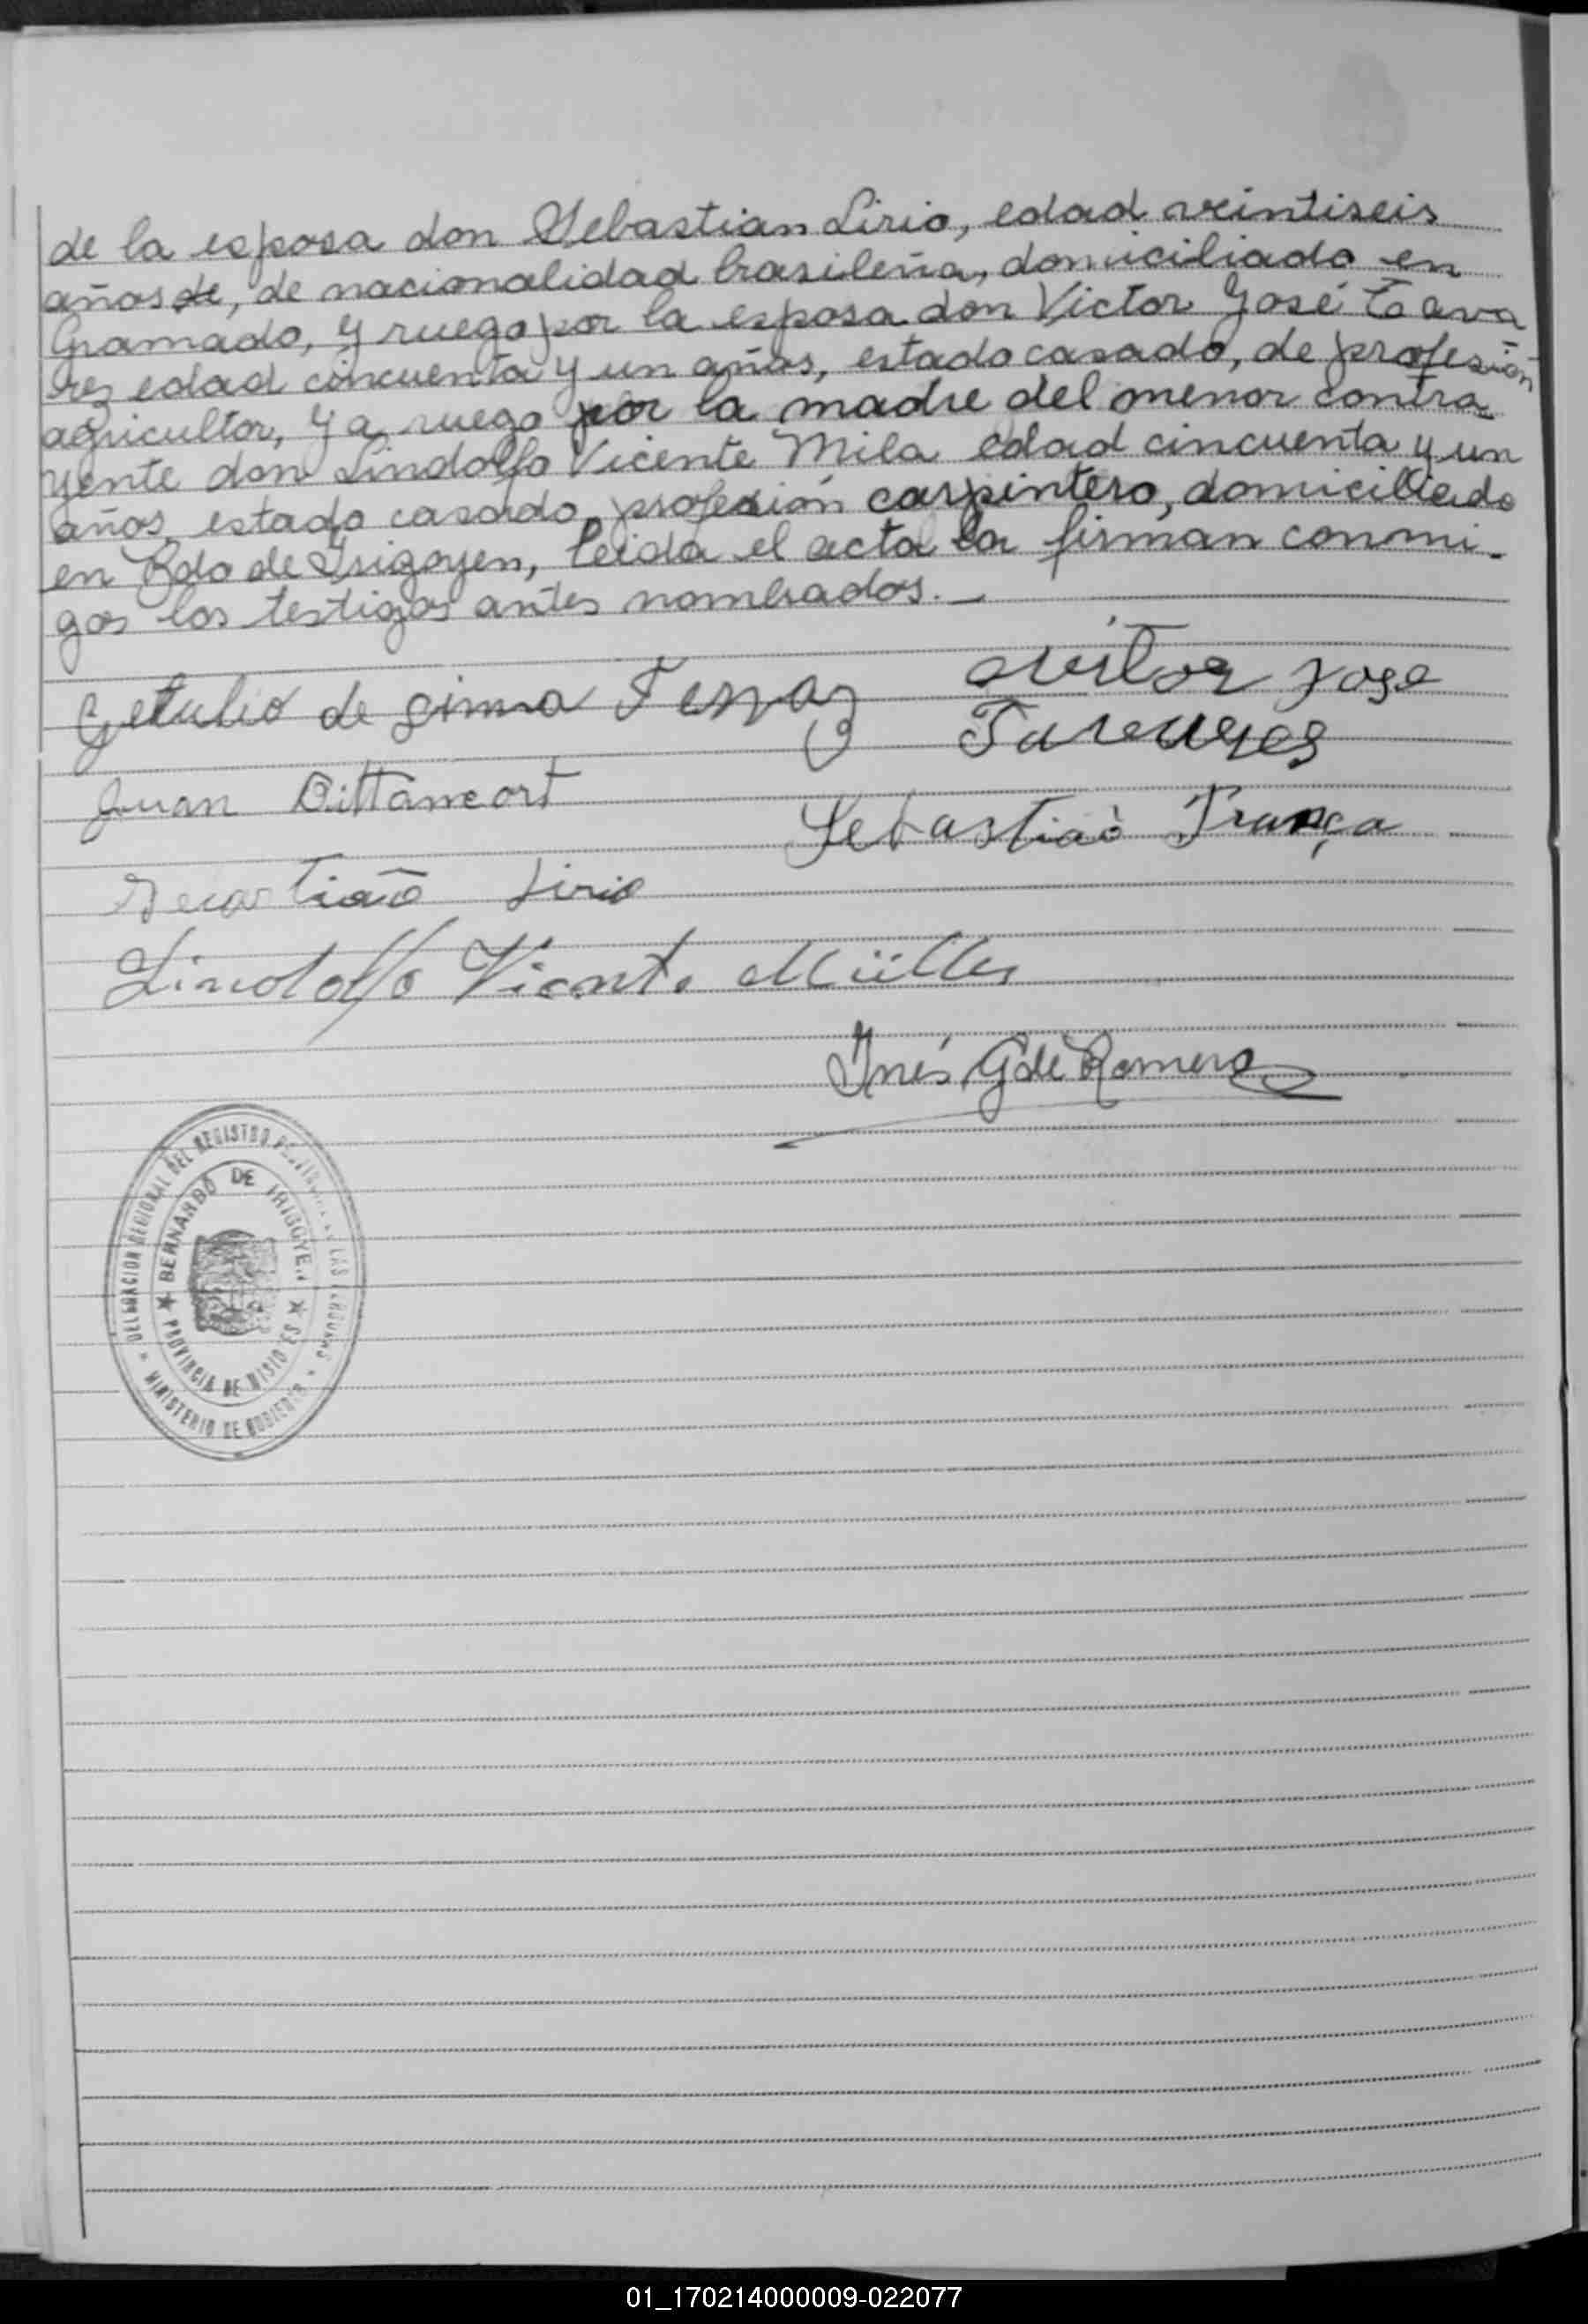 de la esposa don Sebastian Lirio, edad veintiseis
años de, de nacionalidad brasileña, domiciliado en
Gramado, y ruego por la esposa don Victor José Tava
res edad cincuenta y un años, estado casado, de profesión
agricultor, y a ruego por la madre del menor contra
yente don Lindolfo Vicente Mila edad cincuenta y un
años, estado casado, profesión carpintero, domiciliado
en Bdo de Irigoyen, leida el acta la firman conmi-
gos los testigos antes nombrados. —
Getulio de Lima Ferraz
Vitor Jose
Tavares
Juan Bittancort
Sebastiaò França
Sebastião Lirio
Lindolfo Vicente Müller
Inés G de Romero
DELEGACION REGIONAL DEL REGISTRO PROVINCIAL DE LAS PERSONAS
BERNARDO DE IRIGOYEN
PROVINCIA DE MISIONES
MINISTERIO DE GOBIERNO
01_170214000009-022077